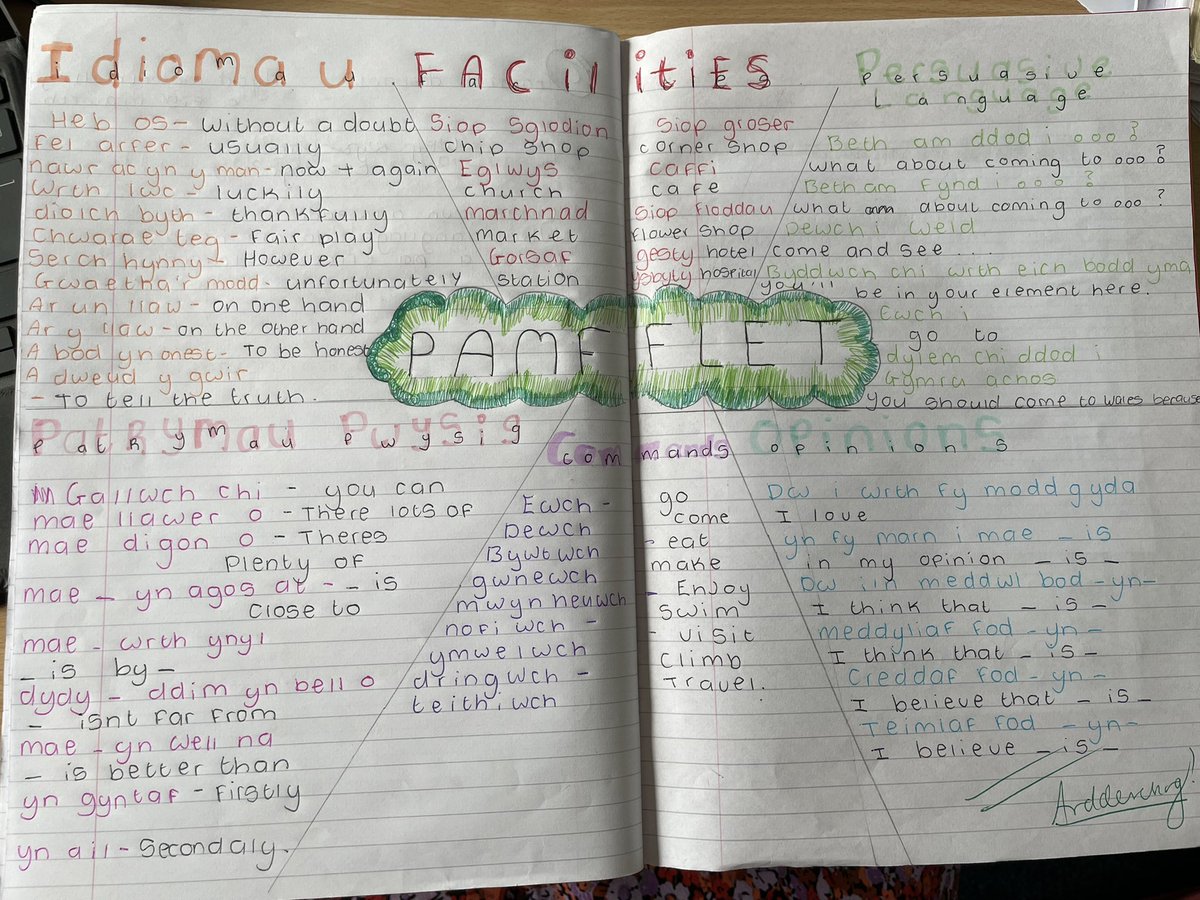 Idiomau
Heb os - without a doubt
Fel arfer - usually
nawr ac yn y man - now + again
Wrth lwc - luckily
diolch byth - thankfully
Chwarae teg - Fair play
Serch hynny - However
Gwaetha'r modd - unfortunately
Ar un llaw - on one hand
Ar y llaw - on the other hand
A bod yn onest - To be honest
A dweud y gwir
- To tell the truth.
FACilitiES
Siop Sglodion
Chip Shop
Eglwys
church
marchnad
market
Gorsaf
station
Siop groser
corner shop
caffi
cafe
Siop floddau
flower shop
gesty hotel
ysbyty hospital
Persuasive
Language
Beth am ddod i ooo?
what about coming to ooo?
Beth am fynd i ooo?
what about coming to ooo?
Dewch i weld
come and see ...
Byddwch chi wrth eich bodd yma
you'll be in your element here.
Ewch i
go to
dylem chi ddod i
Gymru achos
you should come to wales because
PAMFFLET
Patrymau Pwysig
Gallwch chi - you can
mae llawer o - There lots of
mae digon o - Theres
Plenty of
mae - yn agos at - - is
close to
mae - wrth ynyl
- is by -
dydy - ddim yn bell o
- isnt far from
mae - yn well na
- is better than
yn gyntaf - Firstly
yn ail - Secondaly.
Commands
Ewch - go
Dewch come
Bywtwch - eat
gwnewch make
mwynheuwch - Enjoy
nofiwch - Swim
ymwelwch - visit
dringwch - Climb
teithiwch Travel.
Opinions
Dw i wrth fy modd gyda
I love
yn fy marn i mae - is
in my opinion - is -
Dw i'n meddwl bod - yn -
I think that - is -
meddyliaf fod - yn -
I think that - is -
Creddaf fod - yn -
I believe that - is -
Teimlaf fod - yn -
I believe - is -
Ardderchog!